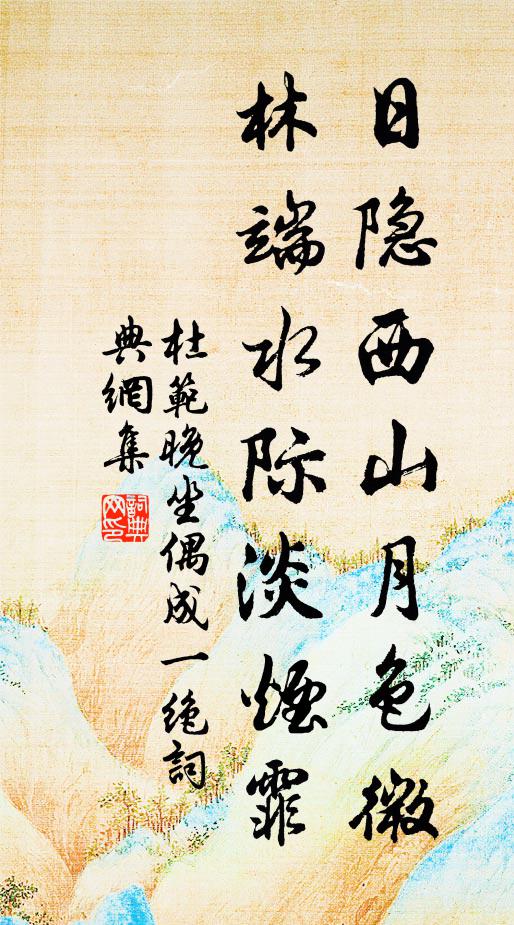 日隐西山月色微
林端水际淡煙霏
杜範晚坐偶成一绝詞
典網集
詞典网印